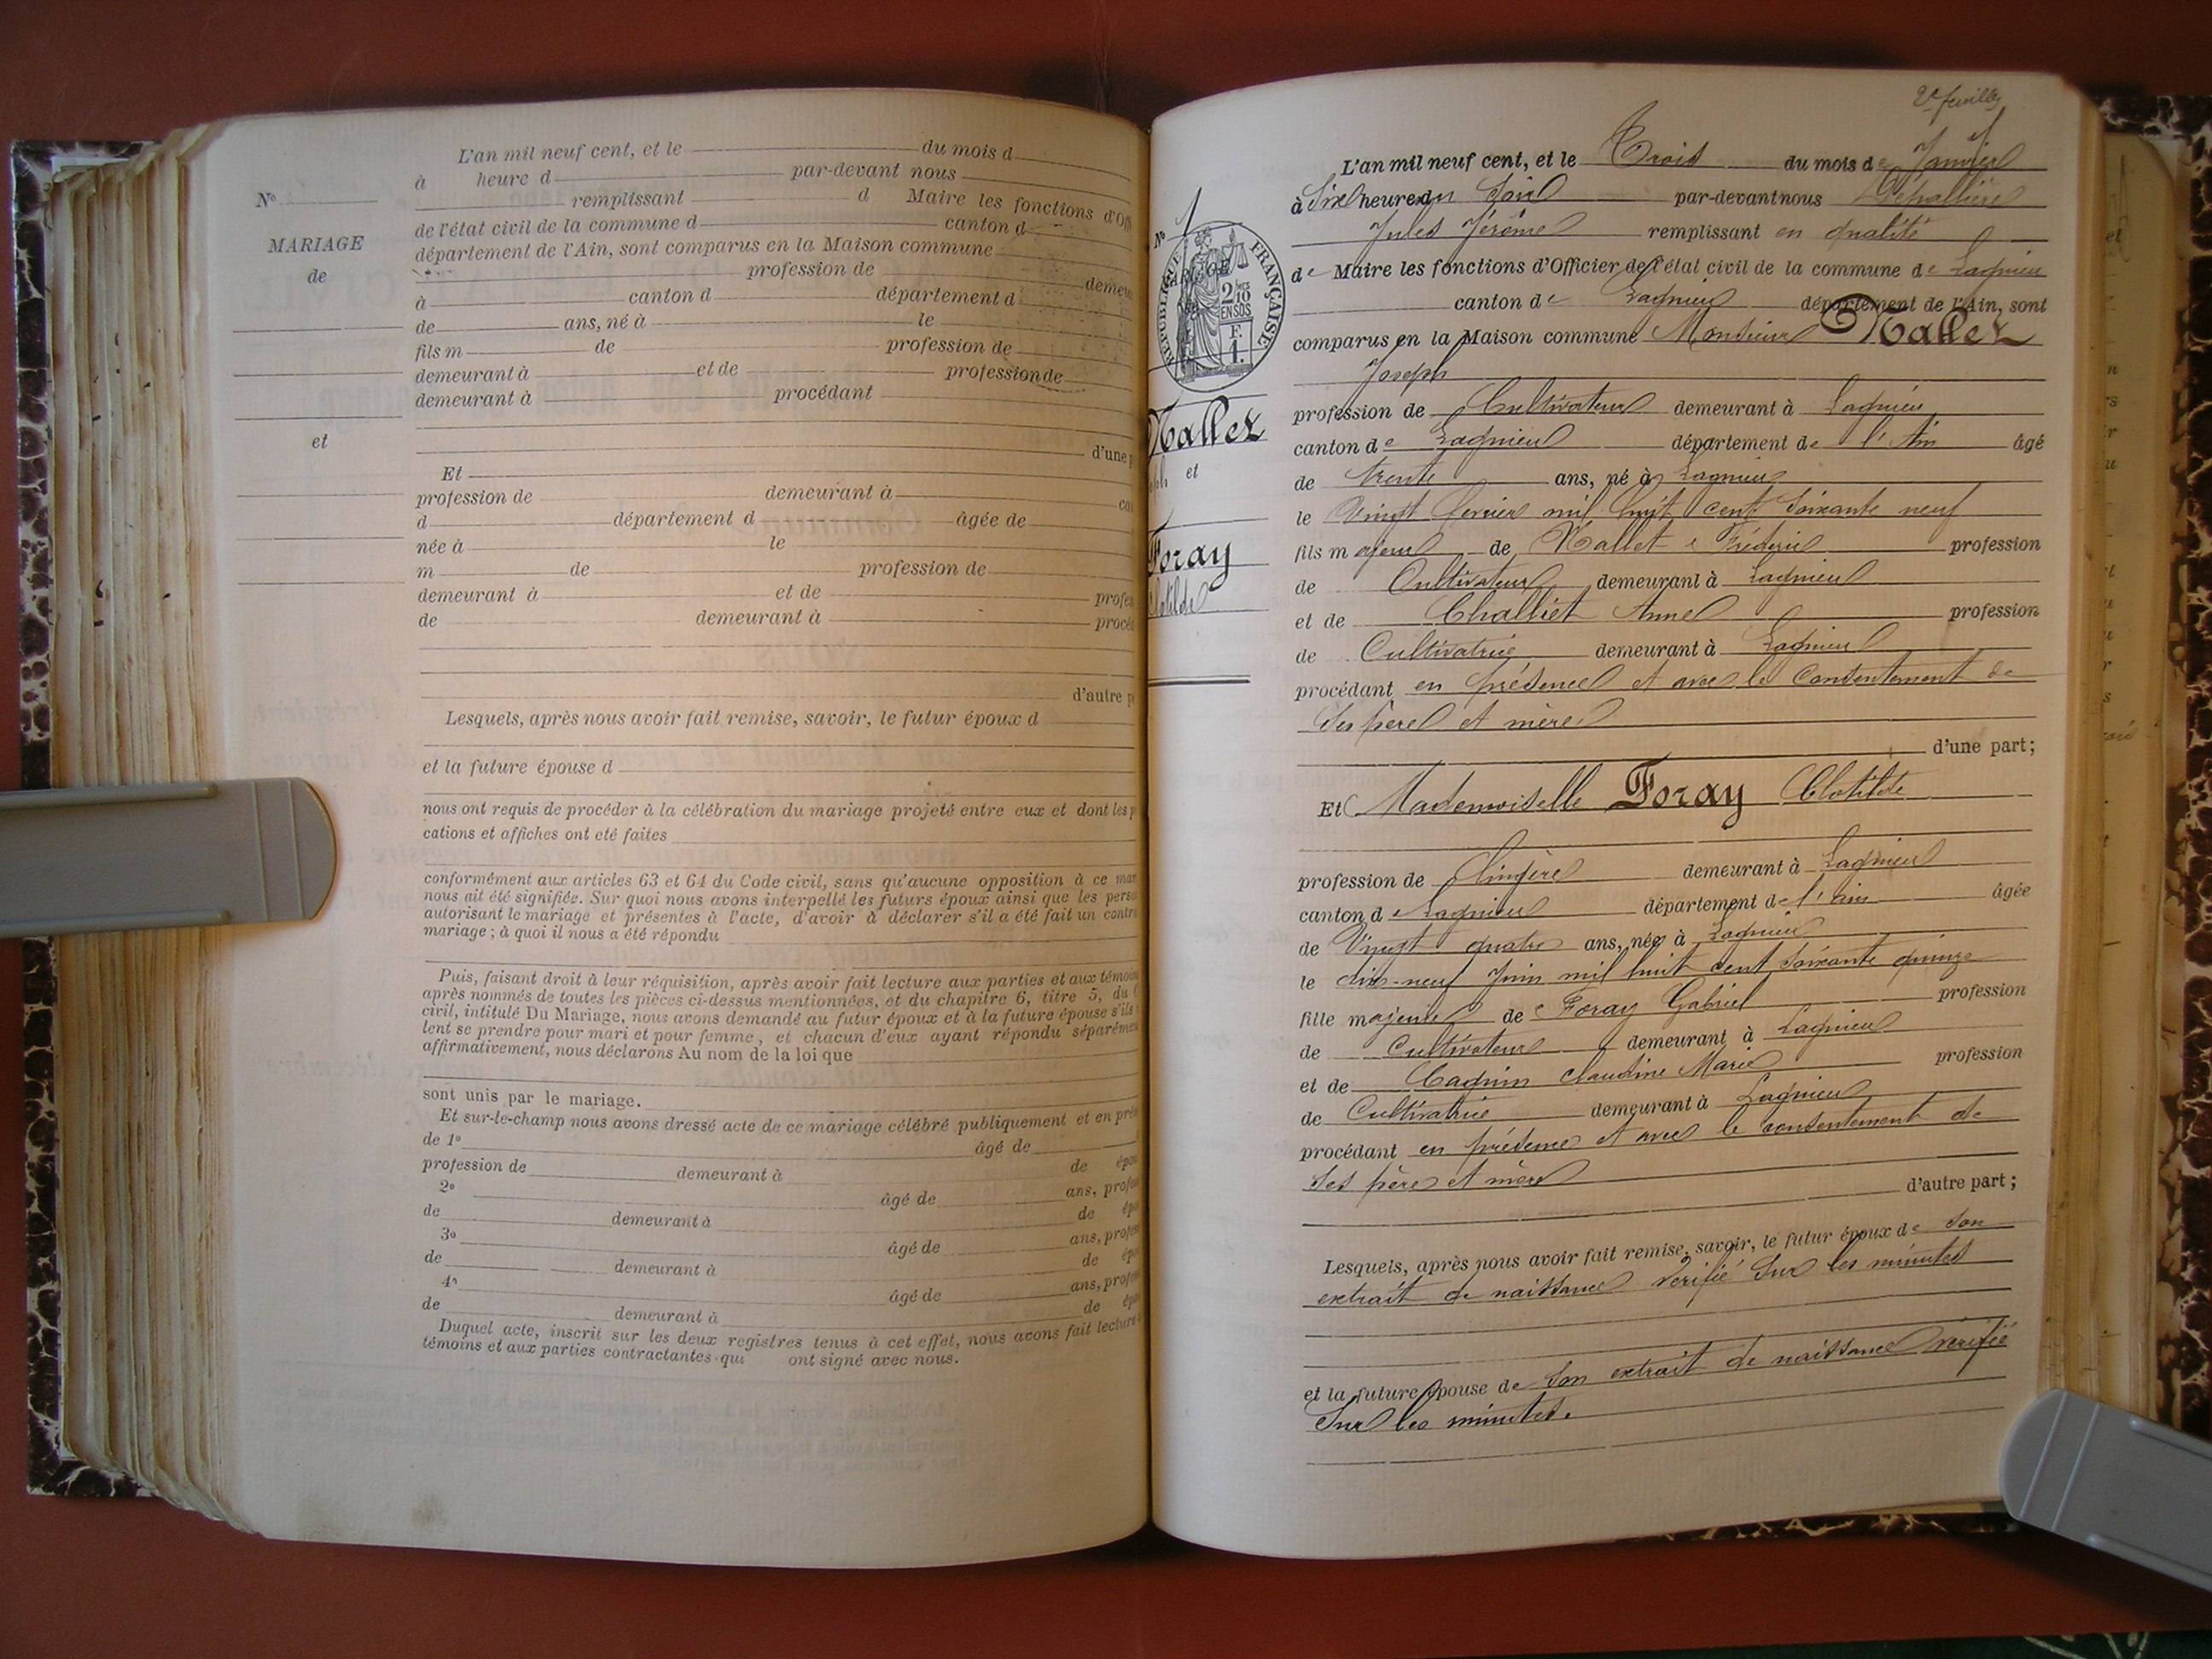 L'an mil neuf cent, et le du mois d
à heure d par-devant nous
remplissant d Maire les fonctions d'Off
de l'état civil de la commune d canton d
département de l'Ain, sont comparus en la Maison commune
profession de demeu
à canton d département d
de ans, né à le
fils m de profession de
demeurant à et de profession de
demeurant à procédant
d'une p
Et
profession de demeurant à can
d département d âgée de
née à le
m de profession de
demeurant à et de profes
de demeurant à procé
d'autre p
Lesquels, après nous avoir fait remise, savoir, le futur époux d
et la future épouse d
nous ont requis de procéder à la célébration du mariage projeté entre eux et dont les p
cations et affiches ont été faites
conformément aux articles 63 et 64 du Code civil, sans qu'aucune opposition à ce mar
nous ait été signifiée. Sur quoi nous avons interpellé les futurs époux ainsi que les pers
autorisant le mariage et présentes à l'acte, d'avoir à déclarer s'il a été fait un contra
mariage ; à quoi il nous a été répondu
Puis, faisant droit à leur réquisition, après avoir fait lecture aux parties et aux témoins
après nommés de toutes les pièces ci-dessus mentionnées, et du chapitre 6, titre 5, du C
civil, intitulé Du Mariage, nous avons demandé au futur époux et à la future épouse s'ils
lent se prendre pour mari et pour femme, et chacun d'eux ayant répondu séparémen
affirmativement, nous déclarons Au nom de la loi que
sont unis par le mariage.
Et sur-le-champ nous avons dressé acte de ce mariage célébré publiquement et en prés
de 1° âgé de
profession de demeurant à de épou
2° âgé de ans, profes
de demeurant à de épo
3° âgé de ans, profes
de demeurant à de épo
4° âgé de ans, profes
de demeurant à de épo
Duquel acte, inscrit sur les deux registres tenus à cet effet, nous avons fait lecture
témoins et aux parties contractantes qui ont signé avec nous.
N°
MARIAGE
de
et
2e feuille
N° 1
MARIAGE
de
RÉPUBLIQUE FRANÇAISE
2/10 EN SUS
F. 1.
Mallez
et
Foray
Clotilde
L'an mil neuf cent, et le Trois du mois de Janvier
à Six heure du Soir par-devant nous
Jules Jérôme remplissant en qualité
de Maire les fonctions d'Officier de l'état civil de la commune de Lagnieu
canton de Lagnieu département de l'Ain, sont
comparus en la Maison commune Monsieur Mallez
Joseph
profession de Cultivateur demeurant à Lagnieu
canton de Lagnieu département de l'Ain âgé
de trente ans, né à Lagnieu
le Vingt février mil huit cent soixante neuf
fils majeur de Mallet Frédéric profession
de Cultivateur demeurant à Lagnieu
et de Challiet Anne profession
de Cultivatrice demeurant à Lagnieu
procédant en présence et avec le Consentement de
Ses père et mère
d'une part;
Et Mademoiselle Foray Clotilde
profession de Lingère demeurant à Lagnieu
canton de Lagnieu département de l'Ain âgée
de Vingt quatre ans, née à Lagnieu
le dix-neuf Juin mil huit cent soixante quinze
fille majeure de Foray Gabriel profession
de Cultivateur demeurant à Lagnieu
et de Cagnin Claudine Marie profession
de Cultivatrice demeurant à Lagnieu
procédant en présence et avec le consentement de
Ses père et mère
d'autre part;
Lesquels, après nous avoir fait remise, savoir, le futur époux de Son
extrait de naissance vérifié Sur les minutes
et la future épouse de Son extrait de naissance vérifié
Sur les minutes.